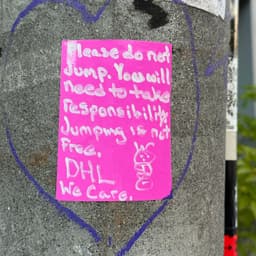 Please do not
Jump. You will
need to take
responsibility.
Jumping is not
Free.
DHL
We Care.